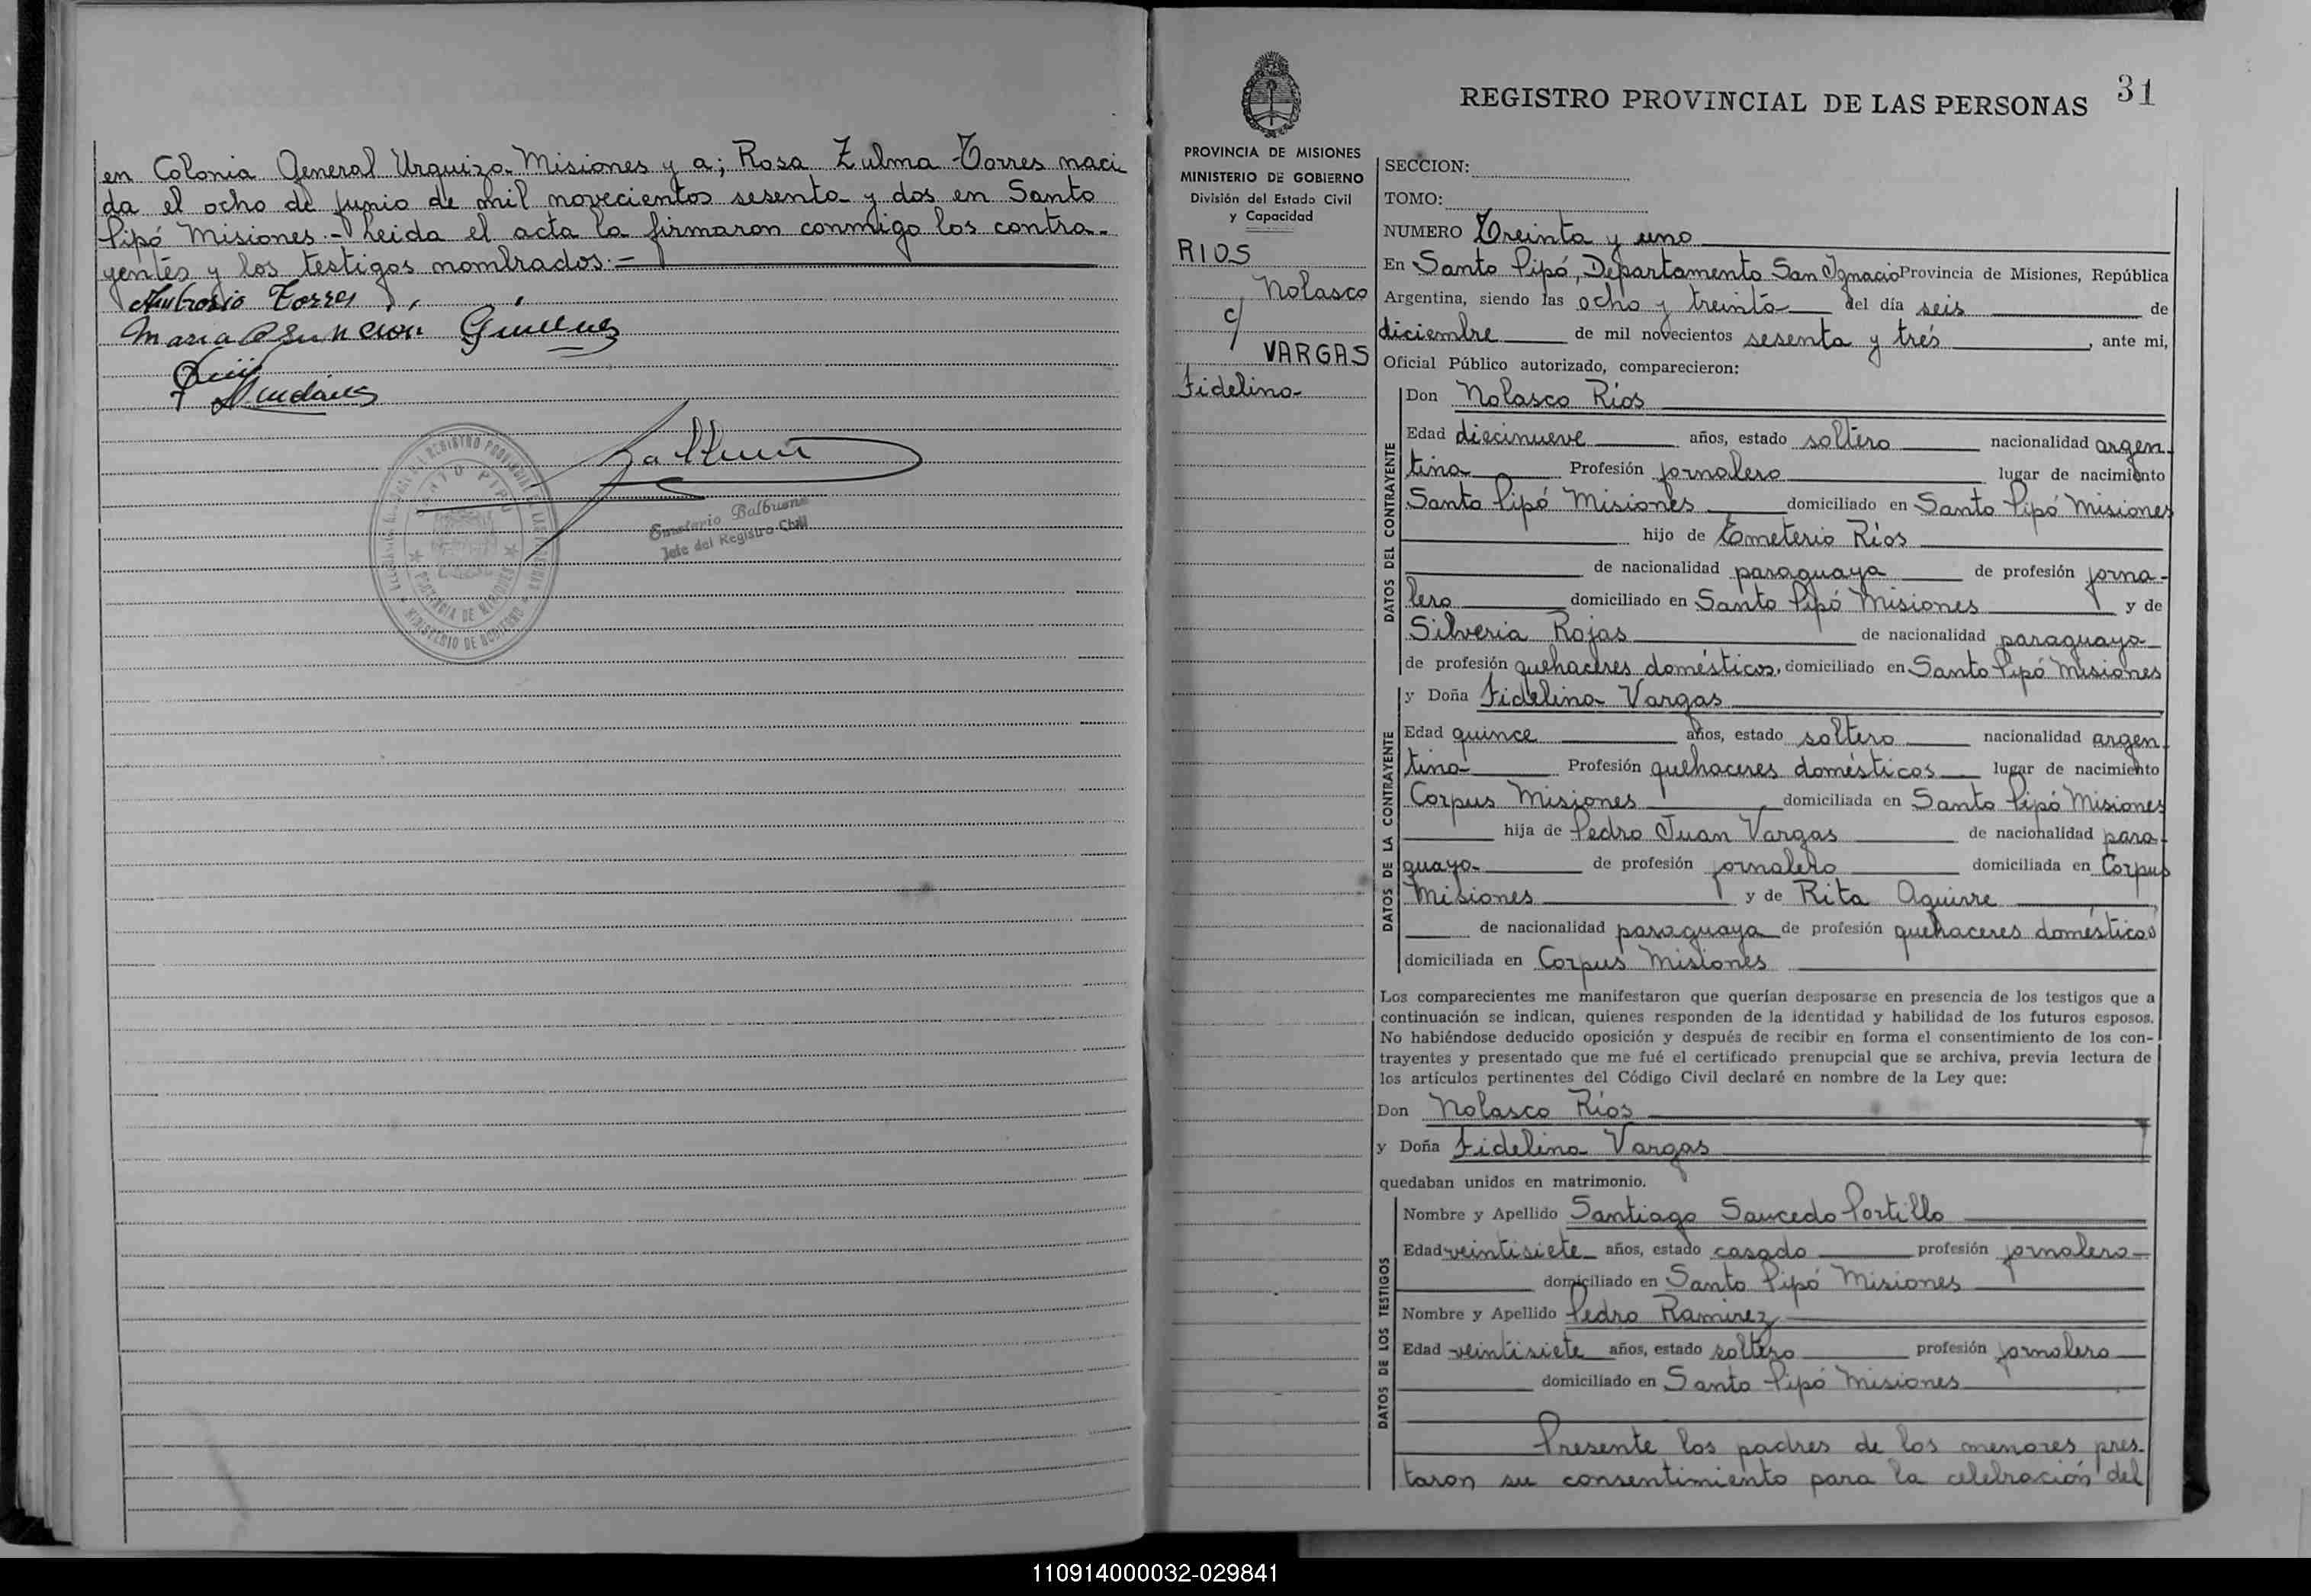 en Colonia General Urquiza. Misiones y a; Rosa Zulma Torres naci
da el ocho de junio de mil novecientos sesenta y dos en Santo
Pipó Misiones.- Leida el acta la firmaron conmigo los contra-
yentes y los testigos nombrados.-
Ambrosio Torres
Maria Asuncion Gimenez
Emeterio Balbuena
Jefe del Registro Civil
REGISTRO PROVINCIAL DE LAS PERSONAS
SANTO PIPO
PROVINCIA DE MISIONES
MINISTERIO DE GOBIERNO
31
REGISTRO PROVINCIAL DE LAS PERSONAS
PROVINCIA DE MISIONES
MINISTERIO DE GOBIERNO
División del Estado Civil
y Capacidad
RIOS
Nolasco
c/
VARGAS
Fidelina
SECCION:
TOMO:
NUMERO Treinta y uno
En Santo Pipó, Departamento San Ignacio Provincia de Misiones, República
Argentina, siendo las ocho y treinta del día seis de
diciembre de mil novecientos sesenta y trés, ante mi,
Oficial Público autorizado, comparecieron:
DATOS DEL CONTRAYENTE
Don Nolasco Ríos
Edad diecinueve años, estado soltero nacionalidad argen
tina Profesión jornalero lugar de nacimiento
Santo Pipó Misiones domiciliado en Santo Pipó Misiones
hijo de Emeterio Ríos
de nacionalidad paraguaya de profesión jorna-
lero domiciliado en Santo Pipó Misiones y de
Silveria Rojas de nacionalidad paraguaya
de profesión quehaceres domésticos, domiciliado en Santo Pipó Misiones
DATOS DE LA CONTRAYENTE
y Doña Fidelina Vargas
Edad quince años, estado soltera nacionalidad argen
tina Profesión quehaceres domésticos lugar de nacimiento
Corpus Misiones domiciliada en Santo Pipó Misiones
hija de Pedro Juan Vargas de nacionalidad para-
guaya de profesión jornalero domiciliada en Corpus
Misiones y de Rita Aguirre
de nacionalidad paraguaya de profesión quehaceres domésticos
domiciliada en Corpus Misiones
Los comparecientes me manifestaron que querían desposarse en presencia de los testigos que a
continuación se indican, quienes responden de la identidad y habilidad de los futuros esposos.
No habiéndose deducido oposición y después de recibir en forma el consentimiento de los con-
trayentes y presentado que me fué el certificado prenupcial que se archiva, previa lectura de
los artículos pertinentes del Código Civil declaré en nombre de la Ley que:
Don Nolasco Ríos
y Doña Fidelina Vargas
quedaban unidos en matrimonio.
DATOS DE LOS TESTIGOS
Nombre y Apellido Santiago Saucedo Portillo
Edad veintisiete años, estado casado profesión jornalero
domiciliado en Santo Pipó Misiones
Nombre y Apellido Pedro Ramirez
Edad veintisiete años, estado soltero profesión jornalero
domiciliado en Santo Pipó Misiones
Presente los padres de los menores pres-
taron su consentimiento para la celebración del
110914000032-029841